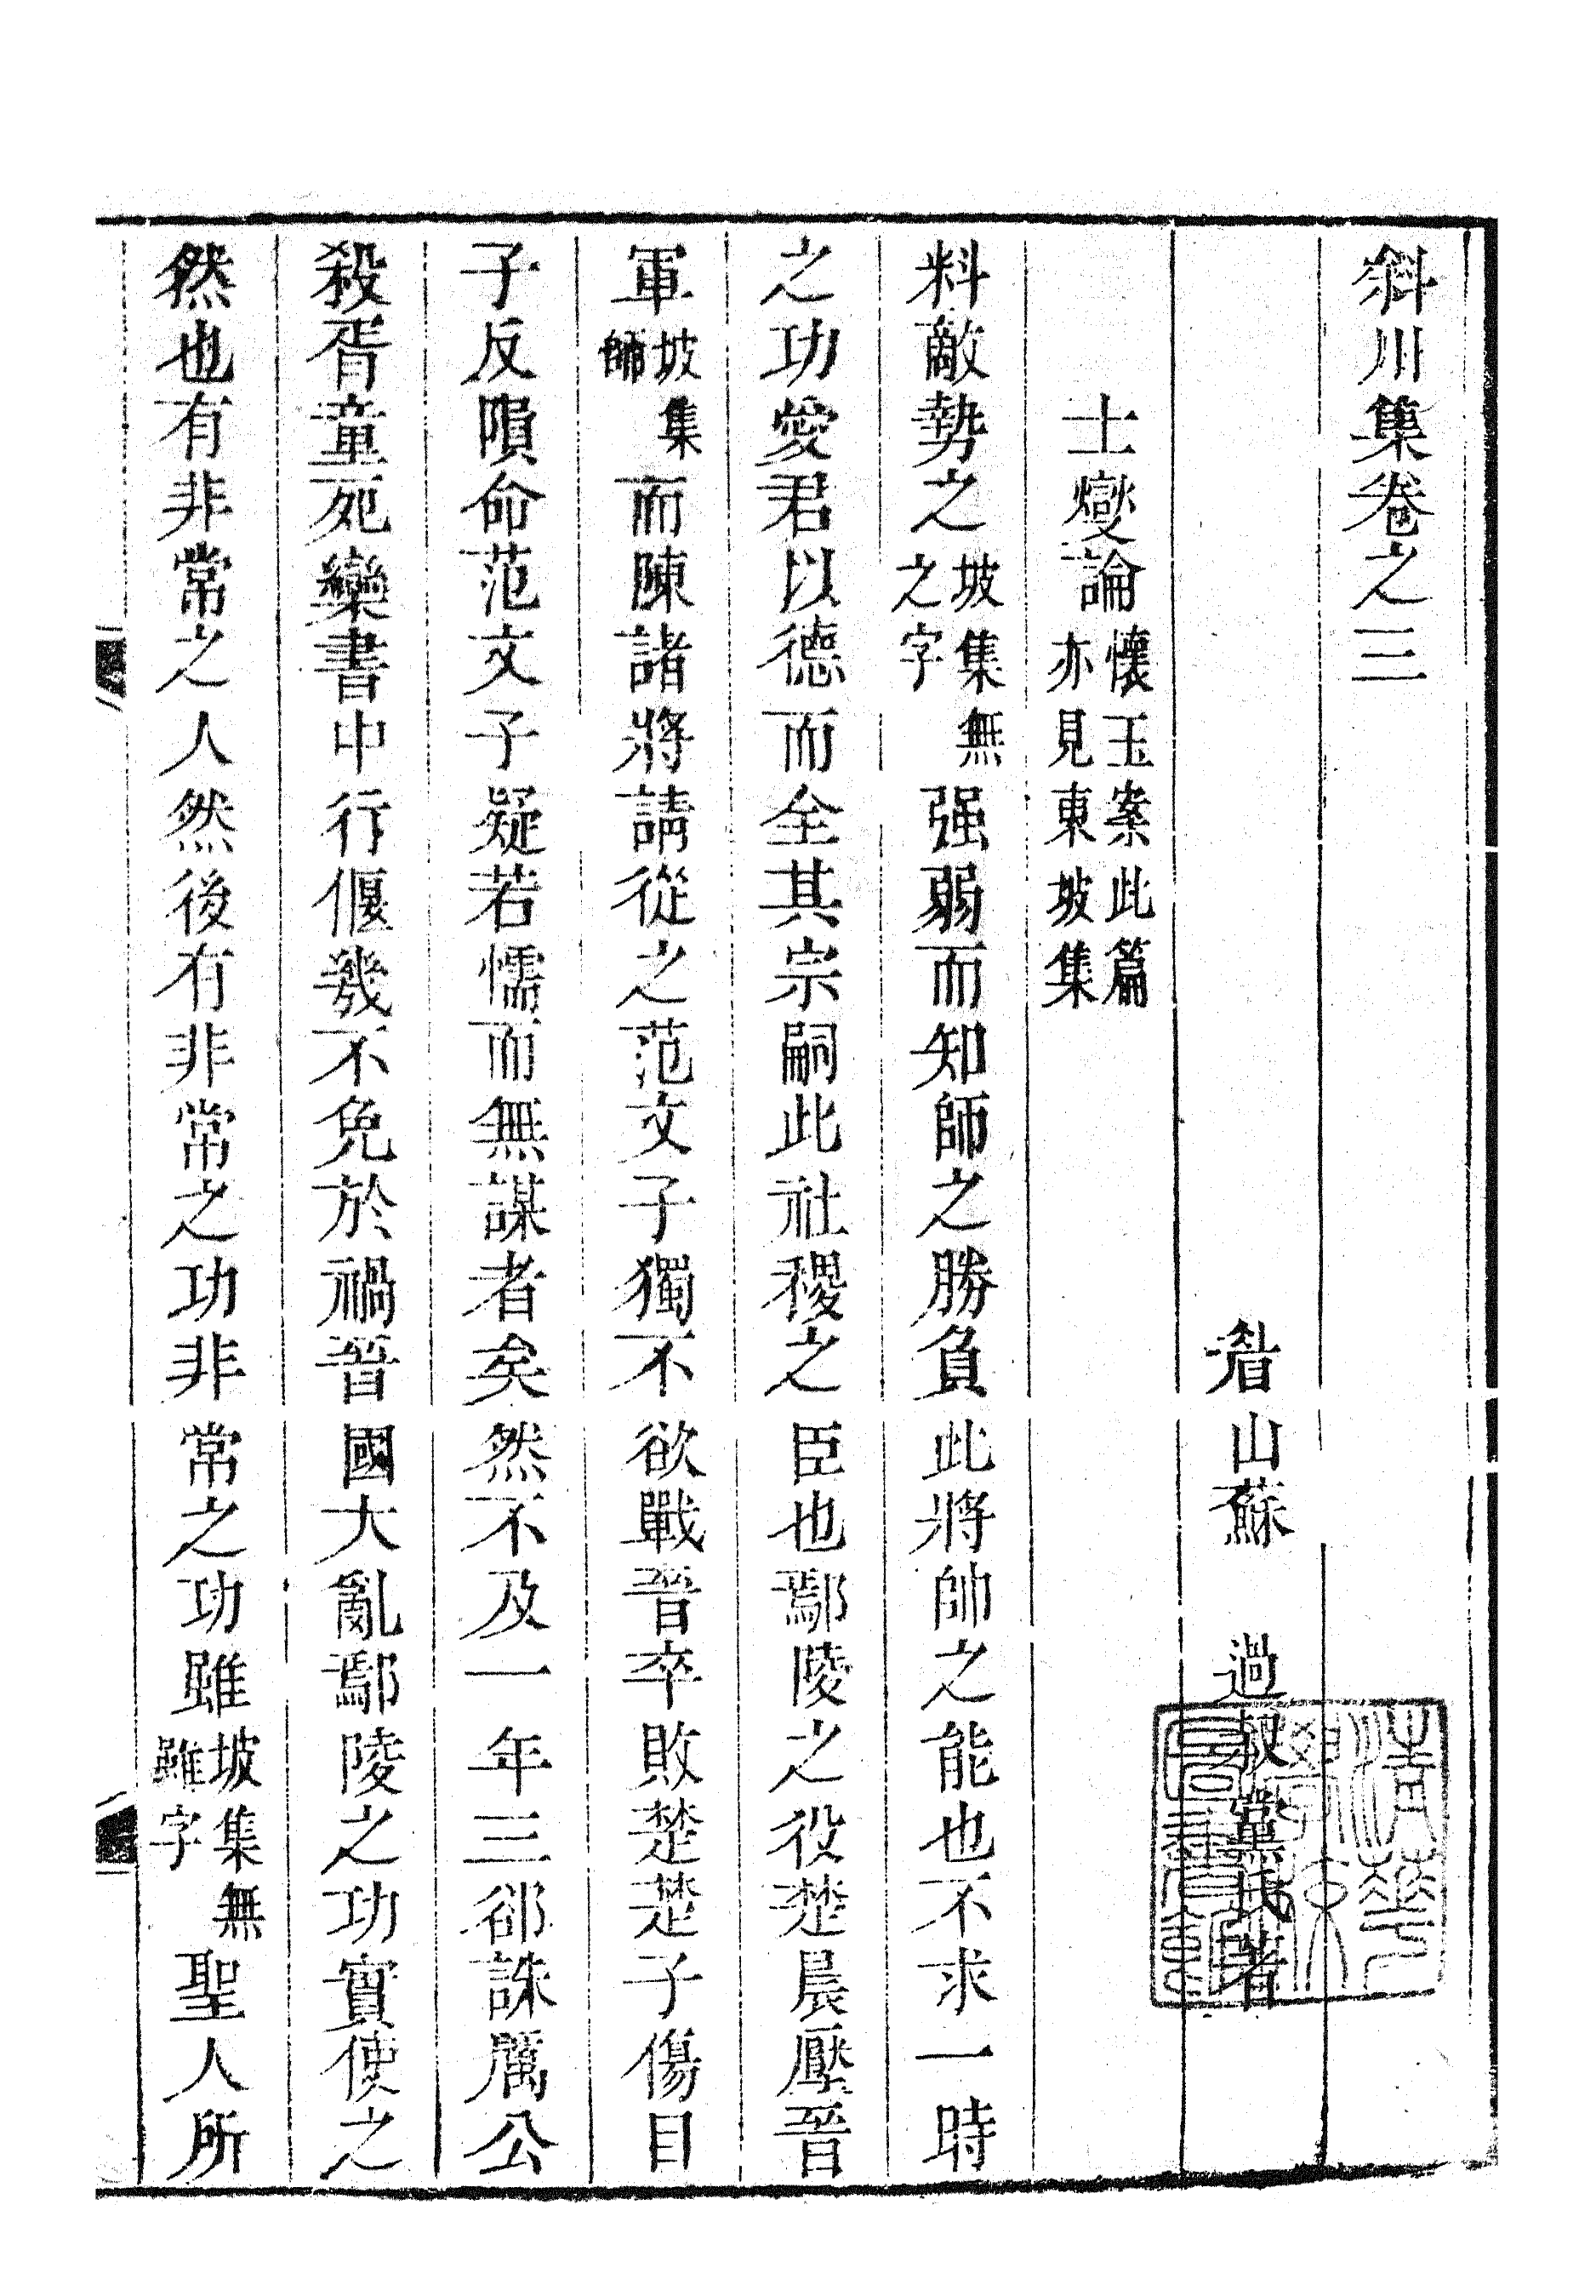 斜川集卷之三
眉山蘇　過叔黨氏著
士燮論懷玉案此篇亦見東坡集
料敵勢之坡集無之字强弱而知師之勝負此將帥之能也不求一時
之功愛君以德而全其宗嗣此社稷之臣也鄢陵之役楚晨壓晉
軍坡集師而陳諸將請從之范文子獨不欲戰晉卒敗楚楚子傷目
子反隕命范文子疑若懦而無謀者矣然不及一年三郤誅厲公
殺胥童死欒書中行偃幾不免於禍晉國大亂鄢陵之功實使之
然也有非常之人然後有非常之功非常之功雖坡集無雖字聖人所